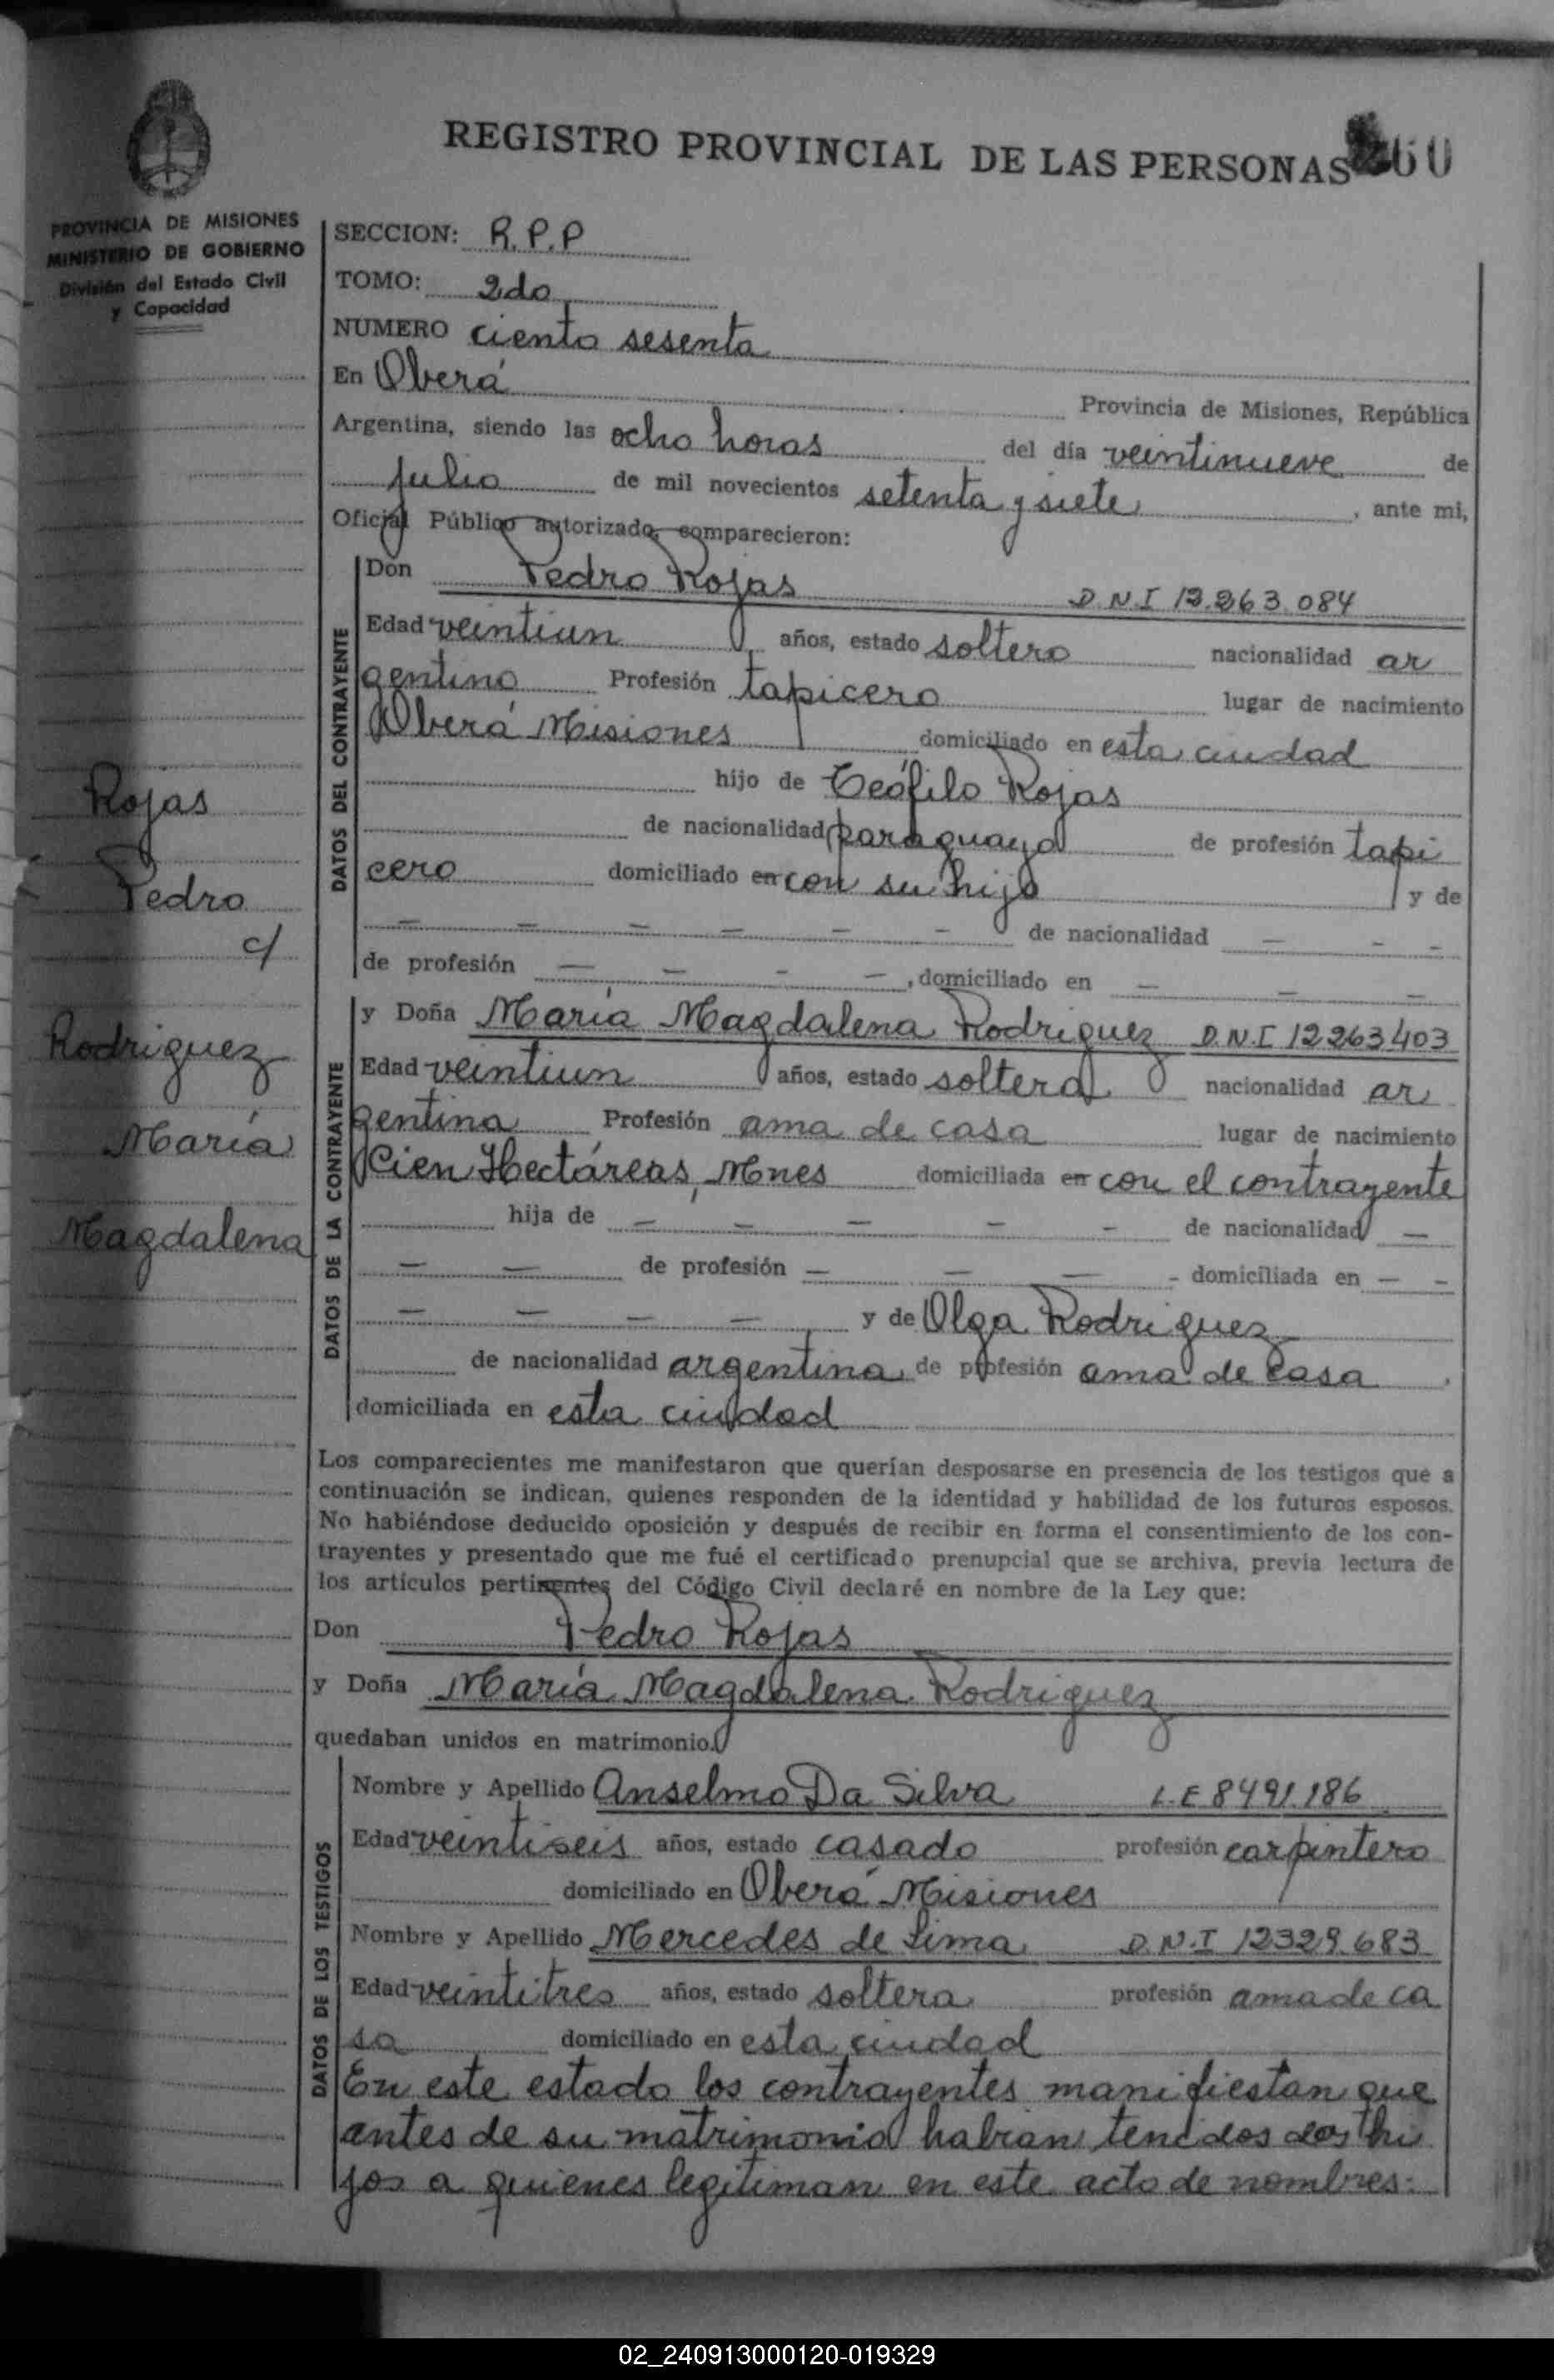 REGISTRO PROVINCIAL DE LAS PERSONAS 60
PROVINCIA DE MISIONES
MINISTERIO DE GOBIERNO
División del Estado Civil
y Capacidad
SECCION: R.P.P
TOMO: 2do
NUMERO ciento sesenta
En Oberá Provincia de Misiones, República
Argentina, siendo las ocho horas del día veintinueve de
julio de mil novecientos setenta y siete, ante mi,
Oficial Público autorizado, comparecieron:
DATOS DEL CONTRAYENTE
Don Pedro Rojas D.N.I
Edad veintiun años, estado soltero nacionalidad ar
gentino Profesión tapicero lugar de nacimiento
Oberá Misiones domiciliado en esta ciudad
hijo de Teófilo Rojas
de nacionalidad paraguaya de profesión tapi
cero domiciliado en con su hijo y de
— — — — — — de nacionalidad — — —
de profesión — — — —, domiciliado en — — —
Rojas
Pedro
c/
Rodriguez
María
Magdalena
DATOS DE LA CONTRAYENTE
y Doña María Magdalena Rodriguez D.N.I 12263403
Edad veintiun años, estado soltera nacionalidad ar
gentina Profesión ama de casa lugar de nacimiento
Cien Hectáreas, Mnes domiciliada en con el contrayente
hija de — — — — — de nacionalidad —
— — de profesión — — — - domiciliada en — —
— — — — y de Olga Rodriguez
de nacionalidad argentina de profesión ama de casa
domiciliada en esta ciudad
Los comparecientes me manifestaron que querían desposarse en presencia de los testigos que a
continuación se indican, quienes responden de la identidad y habilidad de los futuros esposos.
No habiéndose deducido oposición y después de recibir en forma el consentimiento de los con-
trayentes y presentado que me fué el certificado prenupcial que se archiva, previa lectura de
los artículos pertinentes del Código Civil declaré en nombre de la Ley que:
Don Pedro Rojas
y Doña María Magdalena Rodriguez
quedaban unidos en matrimonio.
DATOS DE LOS TESTIGOS
Nombre y Apellido Anselmo Da Silva L.E 8491.186
Edad veintiseis años, estado casado profesión carpintero
domiciliado en Oberá Misiones
Nombre y Apellido Mercedes de Lima D.N.I 12329.683
Edad veintitres años, estado soltera profesión ama de ca
sa domiciliado en esta ciudad
En este estado los contrayentes manifiestan que
antes de su matrimonio habian tenidos dos hi
jos a quienes legitiman en este acto de nombres:
02_240913000120-019329